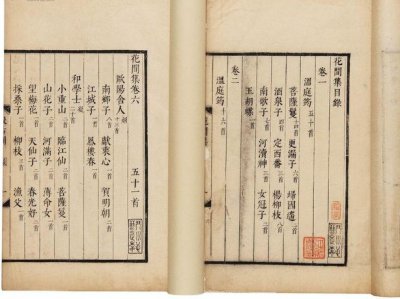 花間集目錄
卷一
溫庭筠 五十首
菩薩蠻十四首 更漏子六首 歸國遙二首
酒泉子四首 定西番三首 楊柳枝八首
南歌子七首 河瀆神三首 女冠子二首
玉胡蝶一首
卷二
溫庭筠十六首
花間集卷六 五十一首
歐陽舍人炯
南鄉子八首 獻衷心一首 賀明朝二首
江城子一首 鳳樓春一首
和學士凝二十首
小重山二首 臨江仙二首 菩薩蠻一首
山花子二首 河滿子二首 薄命女一首
望梅花一首 天仙子二首 春光好二首
採桑子一首 柳枝三首 漁父一首